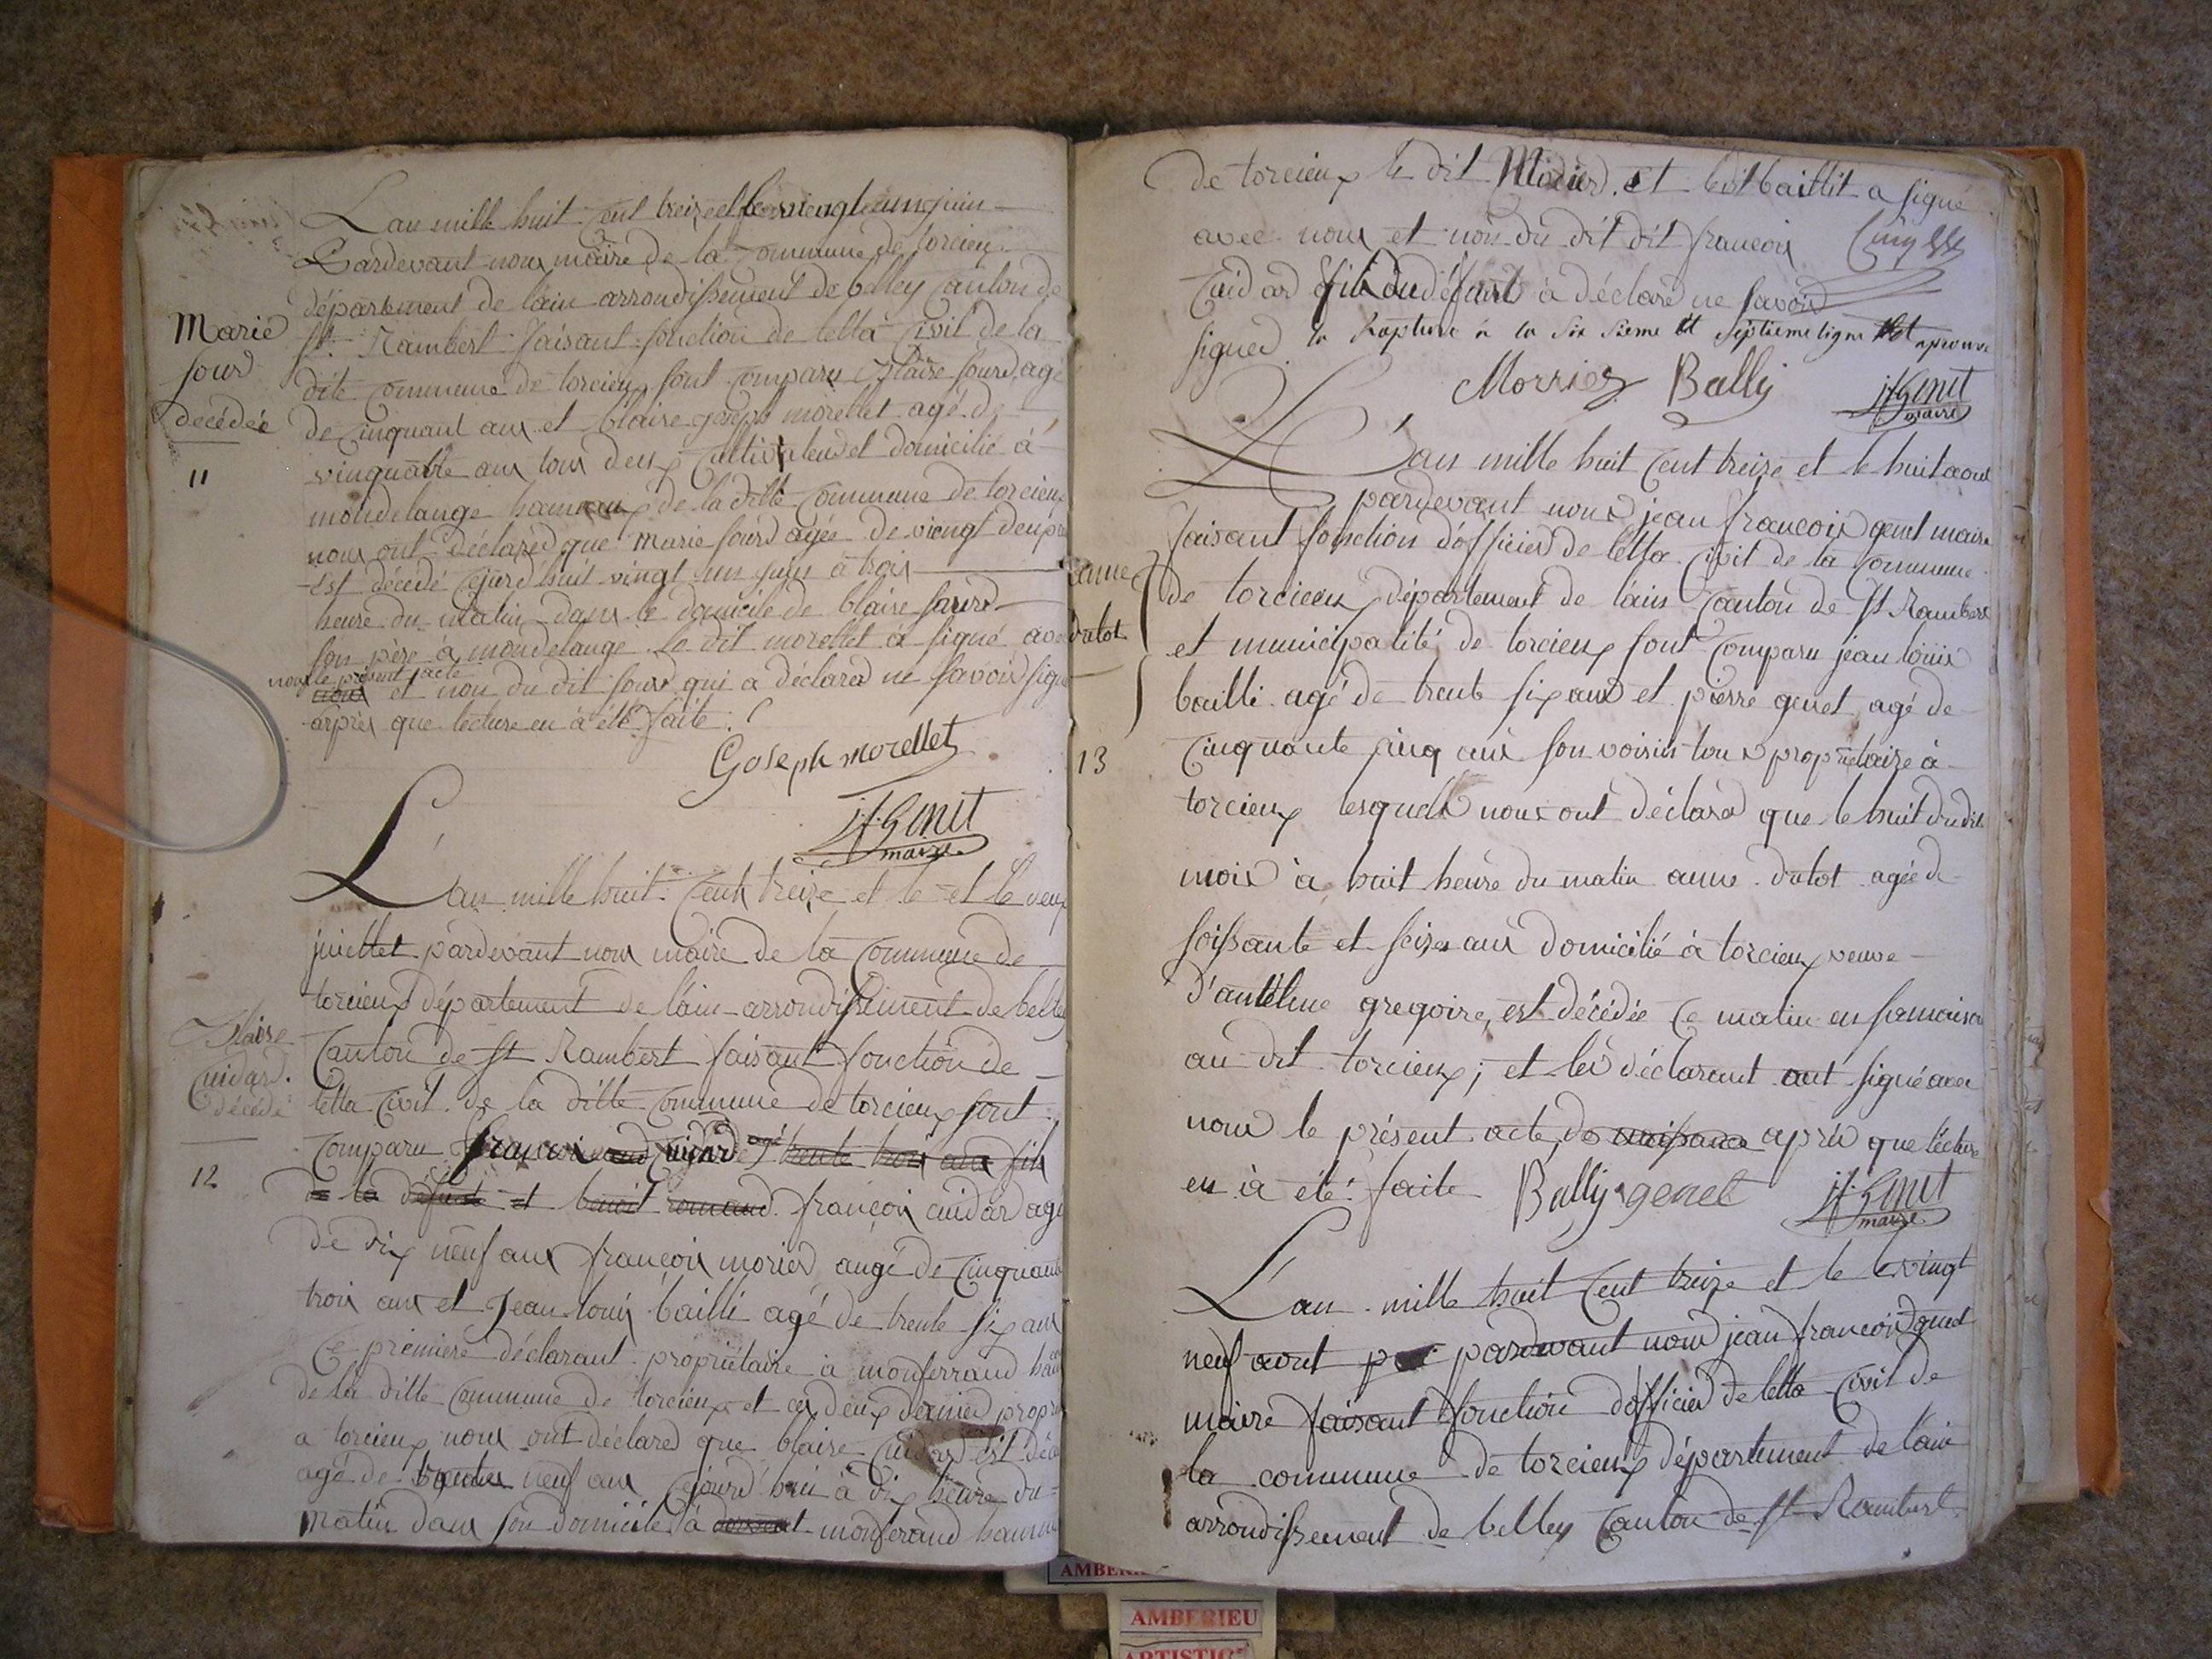 L'an mille huit cent treize et le viengt un juin
Pardevant nous maire de la commune de torcieu
département de l'ain arrondissement de belley canton de
st Rambert faisant fonction de letta civil de la
dite commune de torcieux sont comparu blaise sourd agé
de cinquant ans et blaise goseph morellet agé de
vinquatre ans tous deux cultivateur et domicilié à
mondelange hameaux de la ditte commune de torcieux
nous ont déclaréd que marie sourd agée de viengt deux
est décédé cejourd'huit vingt un juin à trois
heure du matin dans le domicile de blaise sourd
son père à mondelange le dit morellet à signé avec
nous le présent acte
et non du dit sourd qui a déclaréd ne savoir signé
arprès que lecture en à été faite
Marie
sourd
décédée
11
Goseph morellet
jf Genet
maire
L'an mille huit cent treize et le et le deux
juiellet pardevant nous maire de la commune de
torcieux département de l'ain arrondissement de belley
canton de st Rambert faisant fonction de
letta civil de la ditte commune de torcieux sont
comparu françois cuidard agé trente trois ans fils
de la défunte et benoit romand françois cuidard agé
de dix neuf ans françois moriér, augé de cinquante
trois ans et Jean louis bailli agé de trente six ans
ce premiere déclarant propriétaire à monferrand
de la ditte commune de torcieux et ces deux dernier
a torcieux nous ont déclaréd que blaise cuidard est
agé de trente neuf ans cejourd'hui à dix heure du
matin dans son domicile à monferand
blaise
Cuidard
décédé
12
de torcieux le dit Moriér. et le dit baillit a signé
avec nous et non du dit dit françois
Cuidard fils du défunt à déclaré ne savoir
signéd la Rapture a la six sieme et septieme ligne est aprouve
Morrier Bally jf Genet
maire
L'an mille huit cent treize et le huit aout
pardevant nous jean françois genet maire
faisant fonction d'officier de letta civil de la commune
de torcieux département de l'ain canton de St Rambert
et municipalité de torcieux sont comparu jean louis
bailli agé de trente six ans et pierre genet agé de
cinquante cinq ans son voisin tous propriétaire à
torcieux lesquels nous ont déclaré que le huit du dit
mois à huit heure du matin anne dulot agée de
soissante et seize ans domicilié à torcieux veuve
d'antelme gregoire, est décédée ce matin en sa maison
au dit torcieux; et les déclarant ont signé avec
nous le présent acte, de naissance aprés que lecture
en à été faite Bally genet jf Genet
maire
anne
dulot
13
L'an mille huit cent treize et le vingt
neuf aout pardevant nous jean françois genet
maire faisant fonction d'officier de letta civil de
la commune de torcieux département de l'ain
arrondissement de belley canton de st Rambert
AMBERIEU
ARTISTIC